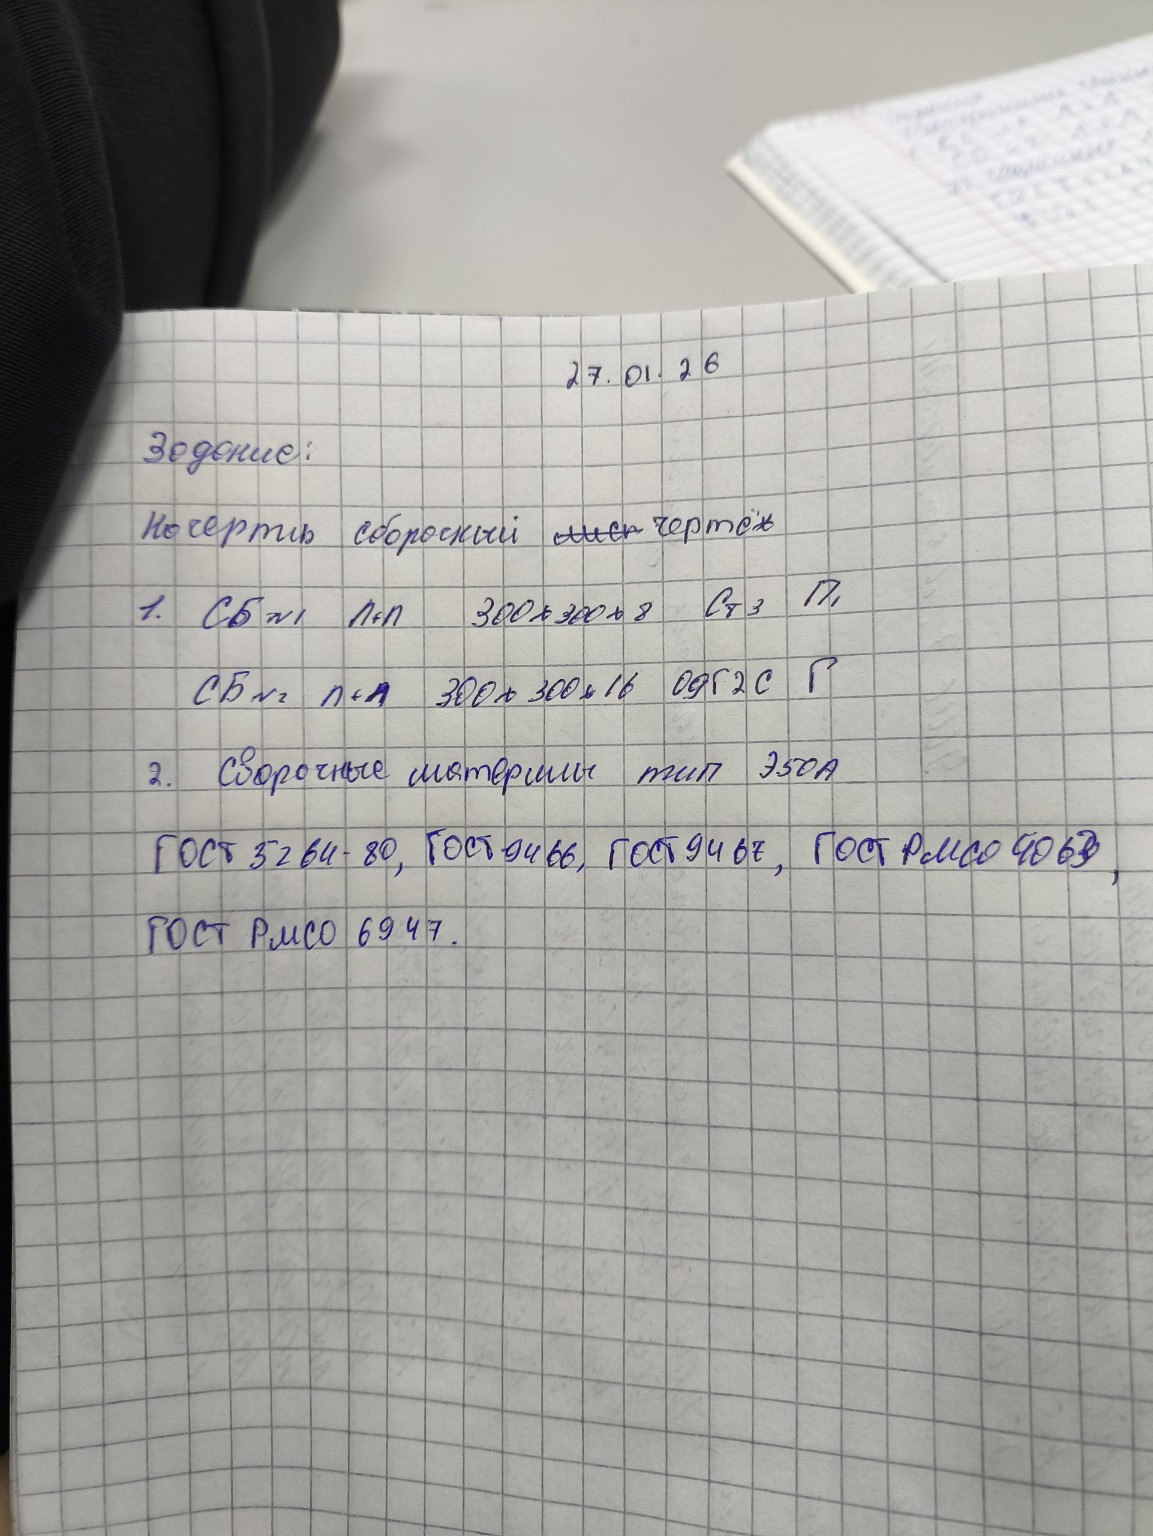 27.01.26
Задание:
Начертить сборочный чертёж
1. СБ №1 П+П 300х300х8 Ст3 П1
СБ №2 П+П 300х300х16 09Г2С Г
2. Сварочные материлы тип Э50А
ГОСТ 5264-80, ГОСТ 9466, ГОСТ 9467, ГОСТ Р ИСО 4063,
ГОСТ Р ИСО 6947.